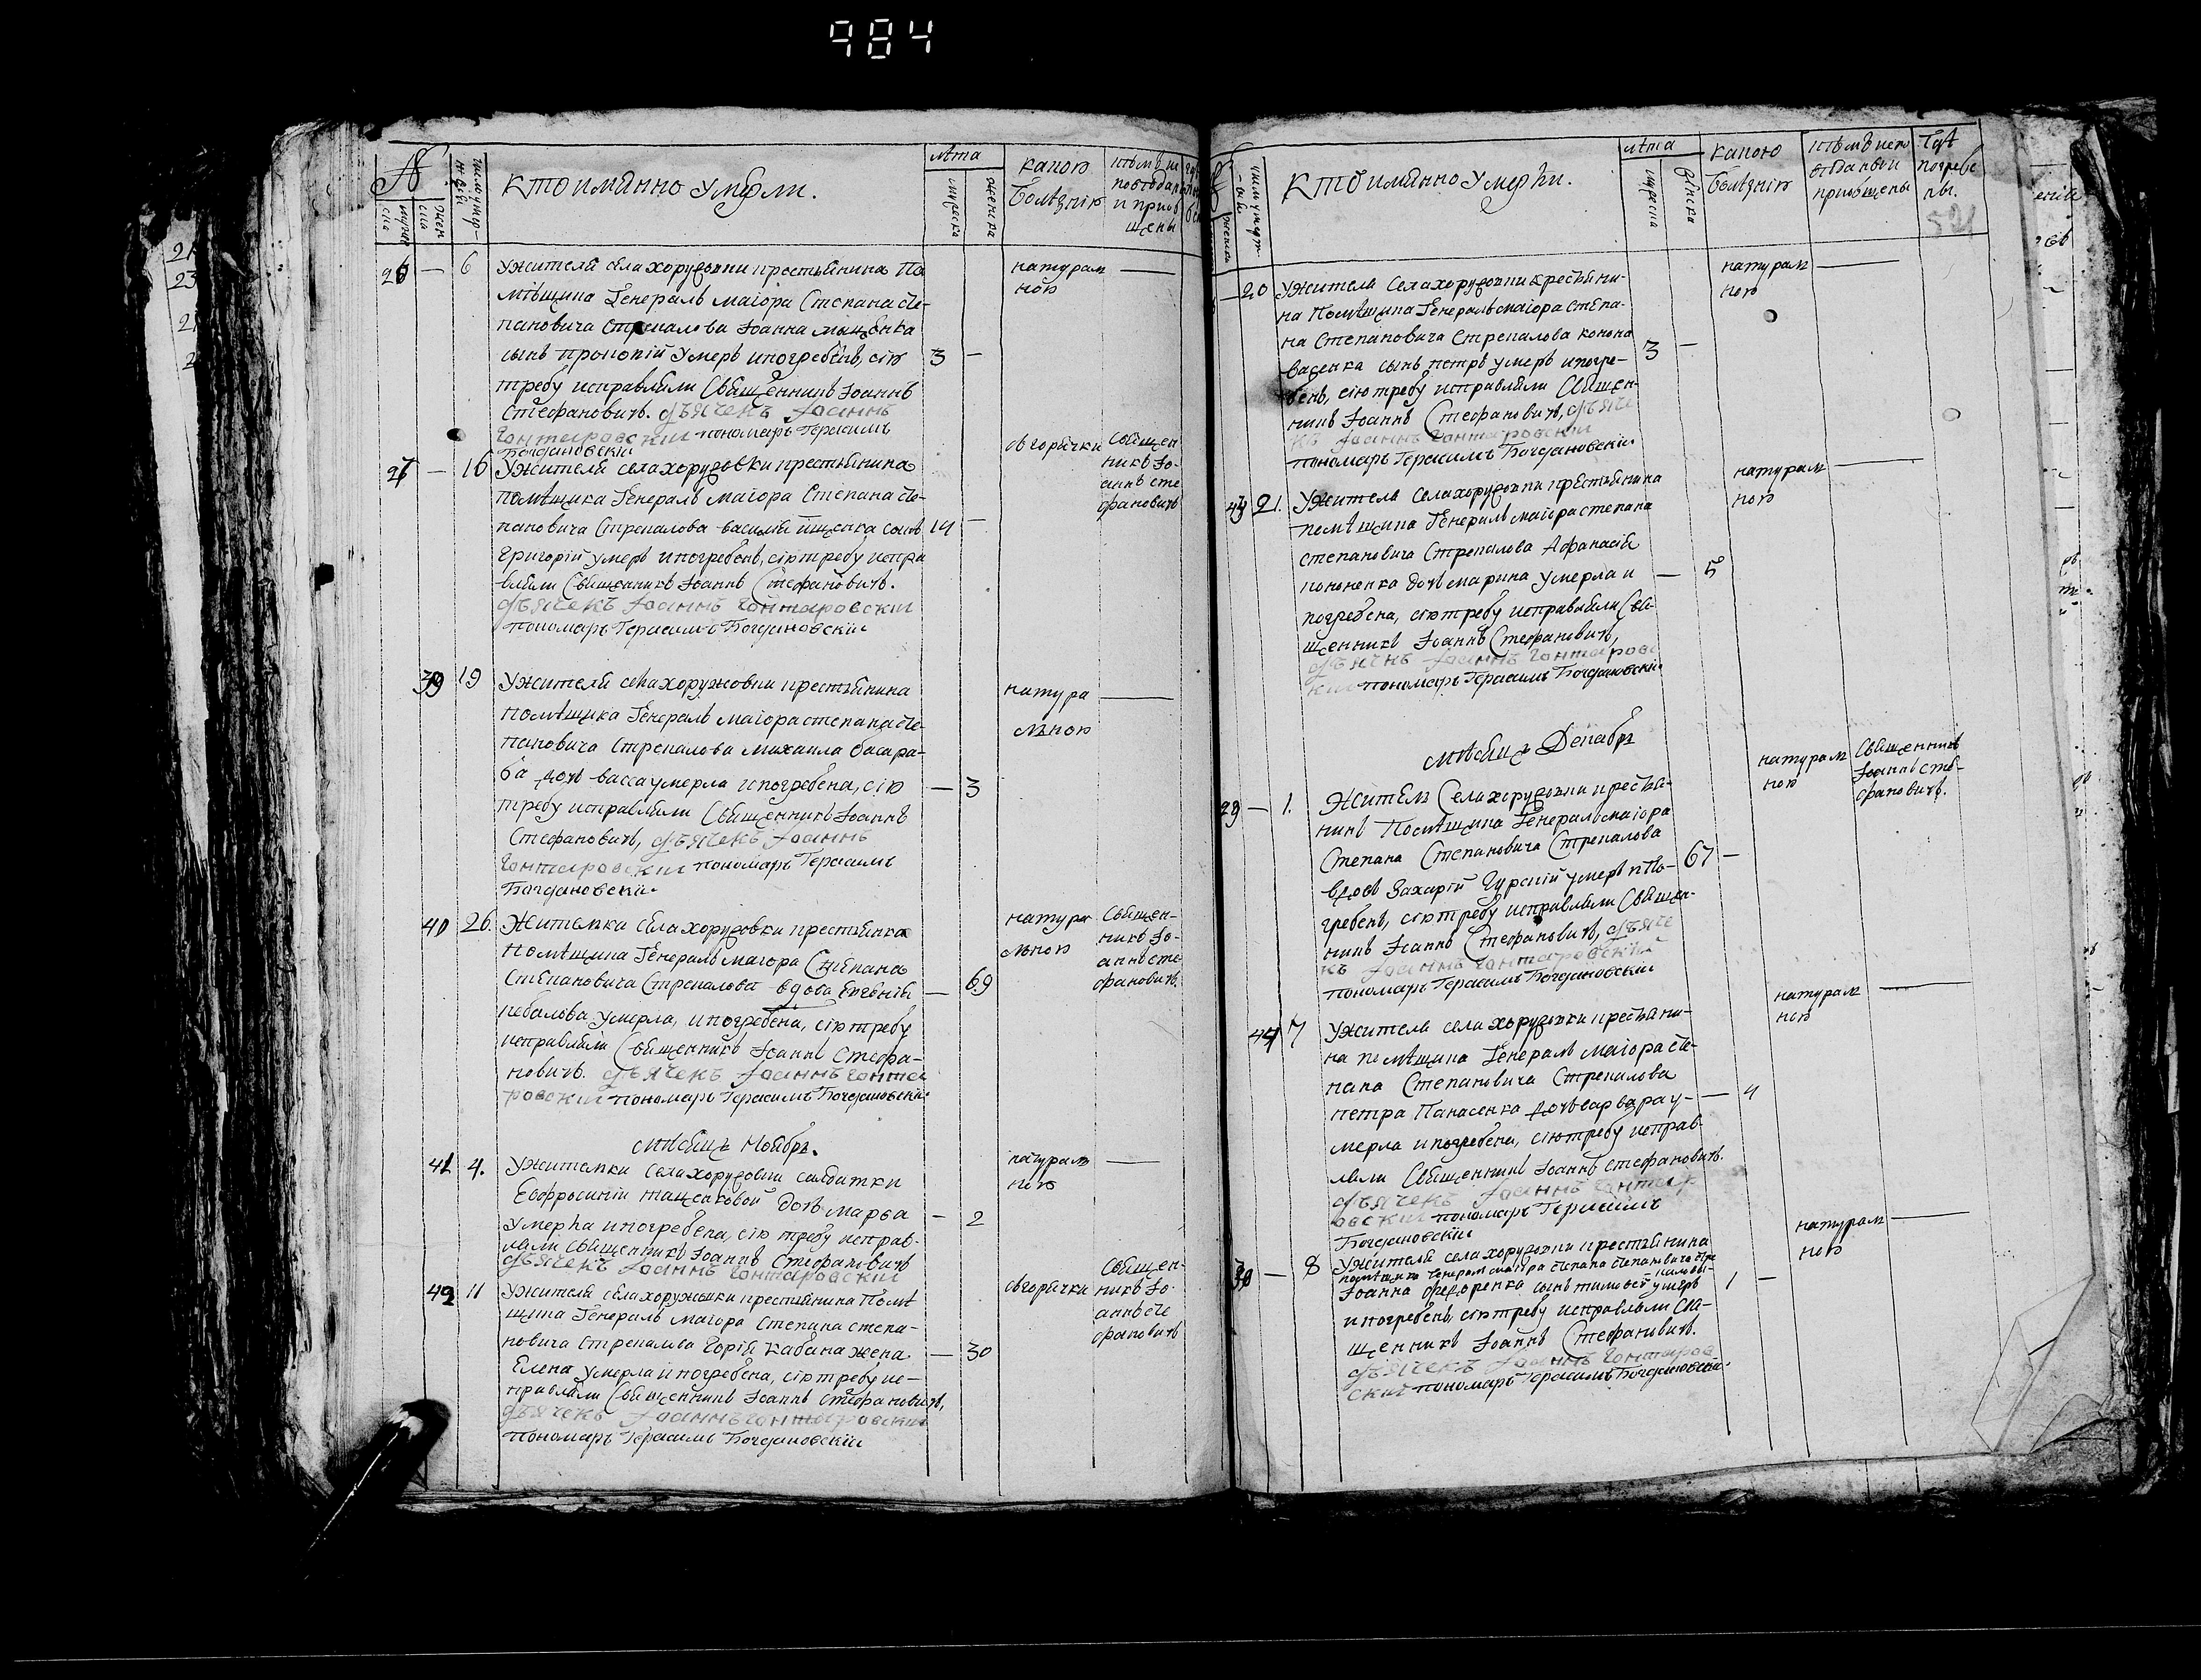 984
№
лѣта
какою
болѣзнію
кто имянно умерли.
мужеска
женска
26 — 6 Ужителя села хорузовки крестьянина По
мѣщика Генералъ маіора Степана Сте-
пановича Стрекалова Іоанна
сынъ прокопій умеръ и погребенъ, сію 3 —
требу исправляли Священникъ Іоаннъ
Стефановичъ. дьячекъ Іоаннъ
Гонтаровскій пономарь Герасимъ
Богдановскій
натурал
ною
27 — 16 Ужителя села хорузовки крестьянина
помѣщика Генералъ маіора Степана Сте-
пановича Стрекалова василія сынъ 14 —
григорій умеръ и погребенъ, сію требу испра
вляли Священникъ Іоаннъ Стефановичъ.
дьячекъ Іоаннъ Гонтаровскій
пономарь Герасимъ Богдановскій
отъ горячки
Священ
никъ Іо-
аннъ Сте
фановичъ
39 19 Ужителя села хоружовки крестьянина
помѣщика Генералъ маіора степана Сте-
пановича Стрекалова михаила басара-
ба дочь васса умерла и погребена, сію — 3
требу исправляли Священникъ Іоаннъ
Стефановичъ, дьячекъ Іоаннъ
Гонтаровскій пономарь Герасимъ
Богдановскій
натура
льною
40 26. Жителька села хорузовки крестьянка
помѣщика Генералъ маіора Степана
Степановича Стрекалова вдова Евгенія — 69
умерла, и погребена, сію требу
исправляли Священникъ Іоаннъ Стефа-
новичъ. дьячекъ Іоаннъ Гонта
ровскій пономарь Герасимъ Богдановскій
натура
льною
Священ-
никъ Іо-
аннъ Сте
фановичъ.
мѣсяцъ Ноябрь.
41 4. Ужительки села хорузовки салдатки
Евфросиніи дочь марѳа — 2
умерла и погребена, сію требу исправ-
ляли священникъ Іоаннъ Стефановичъ
дьячекъ Іоаннъ Гонтаровскій
натурал
ною
42 11 Ужителя села хоружовки крестьянина помѣ
щика Генералъ маіора Степана степа-
новича Стрекалова кабана жена — 30
Елена умерла и погребена, сію требу ис-
правляли Священникъ Іоаннъ Стефановичъ,
дьячекъ Іоаннъ Гонтаровскій
пономарь Герасимъ Богдановскій
отъ горячки
Священ-
никъ Іо-
аннъ Сте
фановичъ
кто имянно умерли.
лѣта
какою
болѣзнію
гдѣ
погребе
ны.
521
— 20 Ужителя села хорузовки крестьяни-
на помѣщика Генералъ маіора степа-
на Степановича Стрекалова конона
васенка сынъ петръ умеръ и погре- 3 —
бенъ, сію требу исправляли Священ-
никъ Іоаннъ Стефановичъ, дьяче
къ Іоаннъ Гонтаровскій
пономарь Герасимъ Богдановскій
натурал
ною
43 21. Ужителя села хорузовки крестьянина
помѣщика Генералъ маіора степана
степановича Стрекалова Афанасія
кононенка дочь марина умерла и — 5
погребена, сію требу исправляли Свя-
щенникъ Іоаннъ Стефановичъ,
дьячекъ Іоаннъ Гонтаровс
кій пономарь Герасимъ Богдановскій
натурал
ною
мѣсяцъ Декабрь
29 — 1. Житель села хорузовки крестья-
нинъ помѣщика Генералъ маіора
Степана Степановича Стрекалова
вдовъ Захарій Гурскій умеръ и по- 67 —
гребенъ, сію требу исправляли Священ-
никъ Іоаннъ Стефановичъ, дьяче
къ Іоаннъ Гонтаровскій
пономарь Герасимъ Богдановскій
натурал
ною
Священникъ
Іоаннъ Сте-
фановичъ.
44 7 Ужителя села хорузовки крестьяни-
на помѣщика Генералъ маіора сте-
пана Степановича Стрекалова
петра Панасенка дочь варвара у- — 4
мерла и погребена, сію требу исправ-
ляли Священникъ Іоаннъ Стефановичъ.
дьячекъ Іоаннъ Гонтар
овскій пономарь Герасимъ
Богдановскій
натурал
ною
30 — 8 Ужителя села хорузовки крестьянина
помѣщика Генералъ маіора степана степановича Стре
калова
Іоанна федоренка сынъ тимофей умеръ 1 —
и погребенъ, сію требу исправляли Свя-
щенникъ Іоаннъ Стефановичъ.
дьячекъ Іоаннъ Гонтаров
скій пономарь Герасимъ Богдановскій
натурал
ною